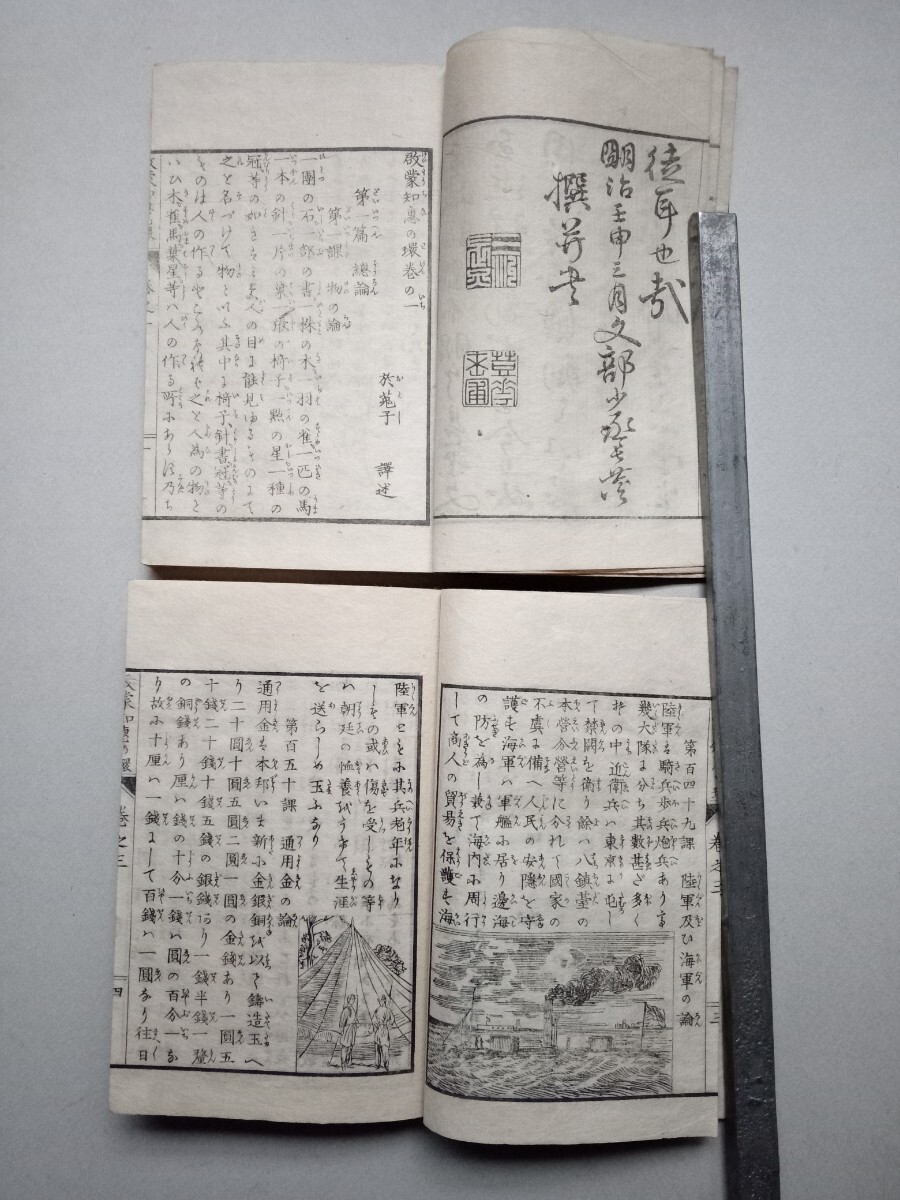 徒耳也哉
明治壬申三月文部少丞長炗
撰并書
啟蒙知惠の環卷の一
於菟子 譯述
第一篇 總論
第一課 物の論
一團の石一部の書一株の木一羽の雀一匹の馬
一本の針一片の菓一張の椅子一㸃の星一種の
冠等の如きもミな人の目に能見ゆるものにて
之を名づけて物といふ其中に椅子針書冠等の
ものは人の作る
之を人為の物と
いひ木雀馬菓星等ハ人の作る所にあらす乃ち
第百四十九課 陸軍及び海軍の論
陸軍は騎兵歩兵炮兵あり
幾大隊に分ち其数甚ざ多く
其の中近衛兵ハ東京に屯し
て禁闕を衛り餘ハ八鎮臺の
本營分營等に分れて國家の
不虞に備へ人民の安隱を守
護も海軍ハ軍艦に居り邊海
の防を為し兼て海内に周行
して商人の貿易を保護も海
陸軍ともに其兵老年になり
しもの或ハ傷を受しもの等
ハ朝廷の恤養をうけて生涯
を送らしめ玉ふなり
第百五十課 通用金の論
通用金は本邦いま新に金銀銅を以て鋳造玉へ
り二十圓十圓五圓二圓一圓の金錢あり一圓五
十錢二十錢十錢五錢の銀錢あり一錢半錢一釐
の銅錢あり厘ハ錢の十分一錢ハ圓の百分一な
り故に十厘ハ一錢にして百錢ハ一圓なり往日
啟蒙知惠の環 卷之三
四
卷之三
三